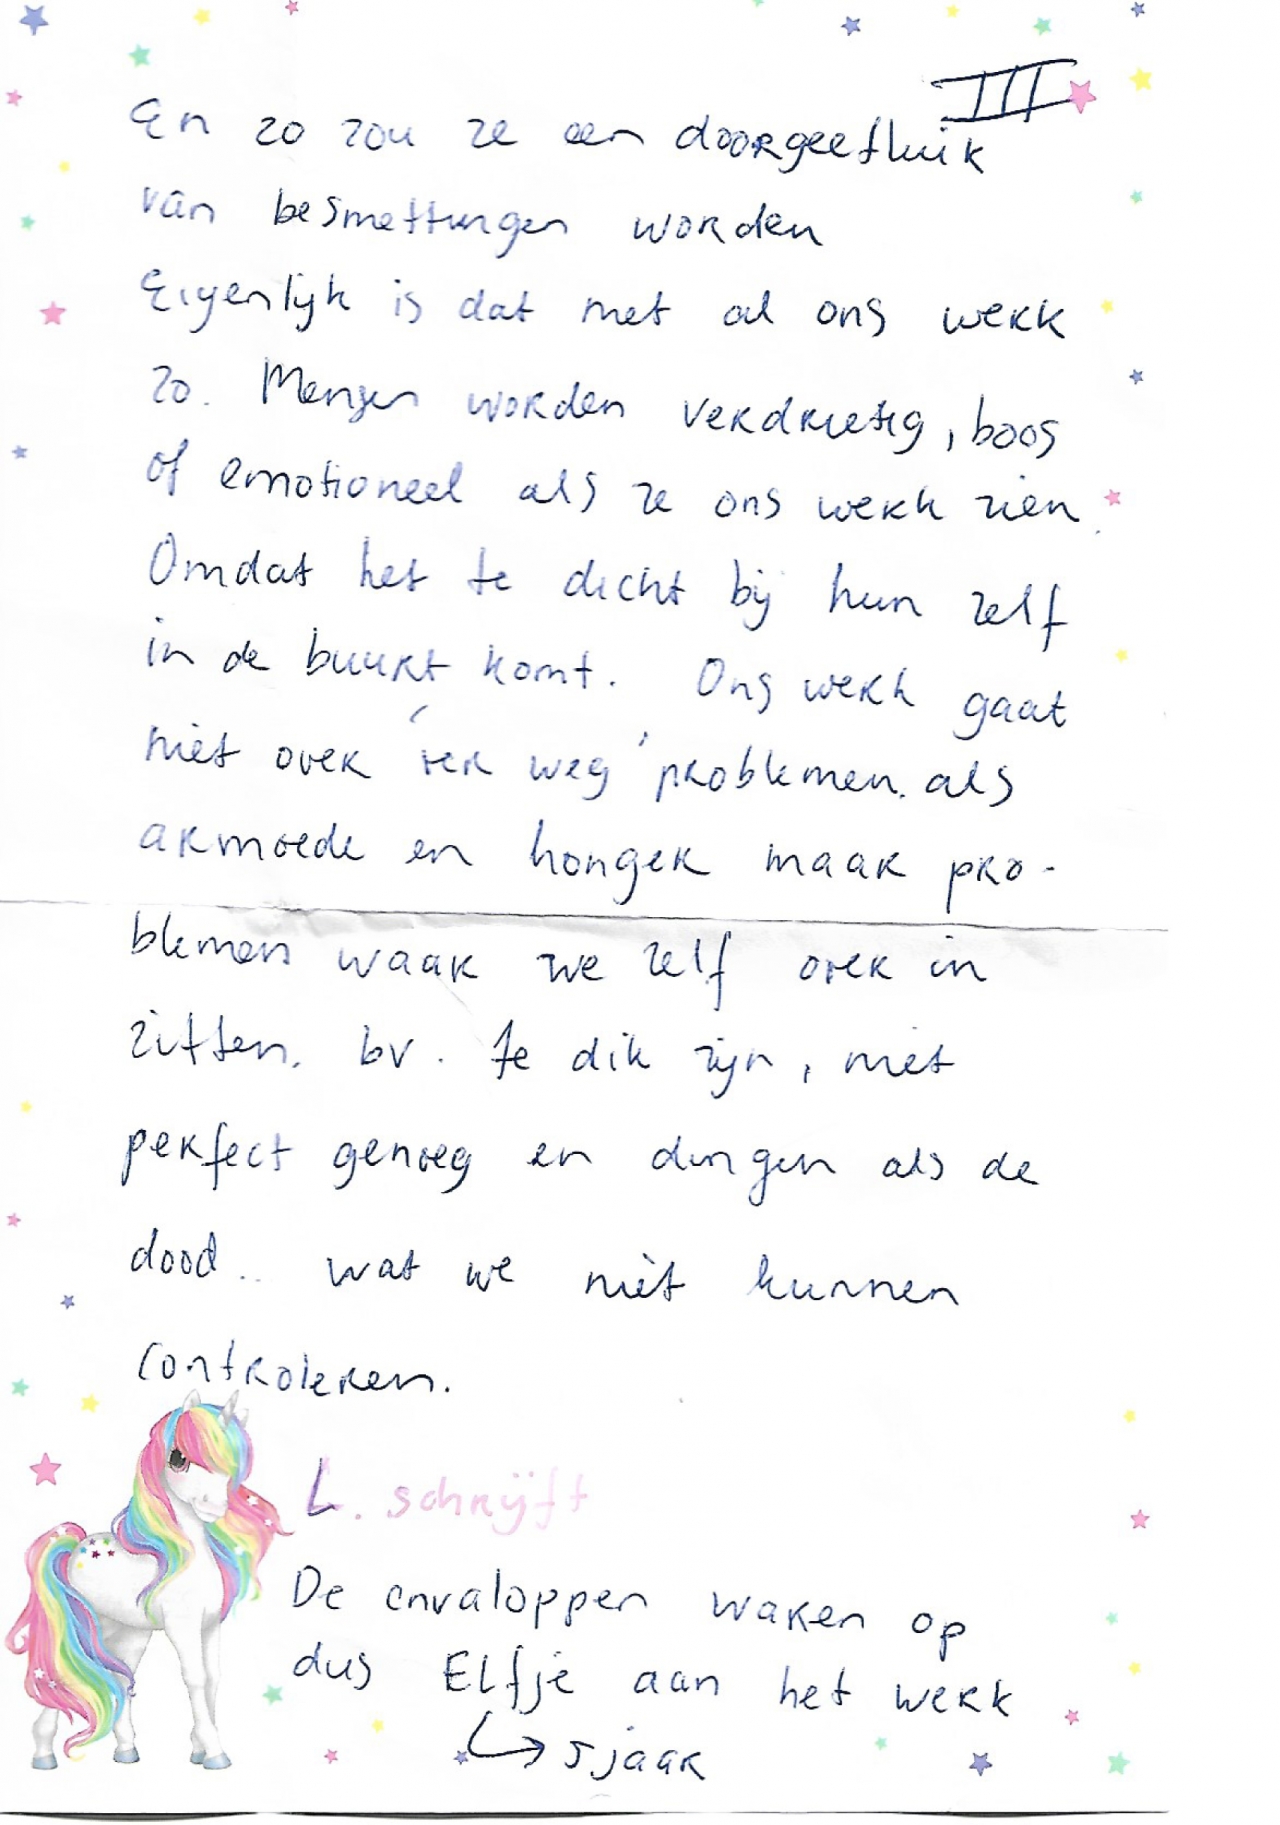 III
En zo zou ze een doorgeefluik
van besmettingen worden
Eigenlijk is dat met al ons werk
zo. Mensen worden verdrietig, boos
of emotioneel als ze ons werk zien.
Omdat het te dicht bij hun zelf
in de buurt komt. Ons werk gaat
niet over 'ver weg' problemen. als
armoede en honger maar pro-
blemen waar we zelf over in
zitten. bv. te dik zijn, niet
perfect genoeg en dingen als de
dood.. wat we niet kunnen
controleren.
L. schrijft
De envaloppen waren op
dus Elfje aan het werk
↳ Sjaar